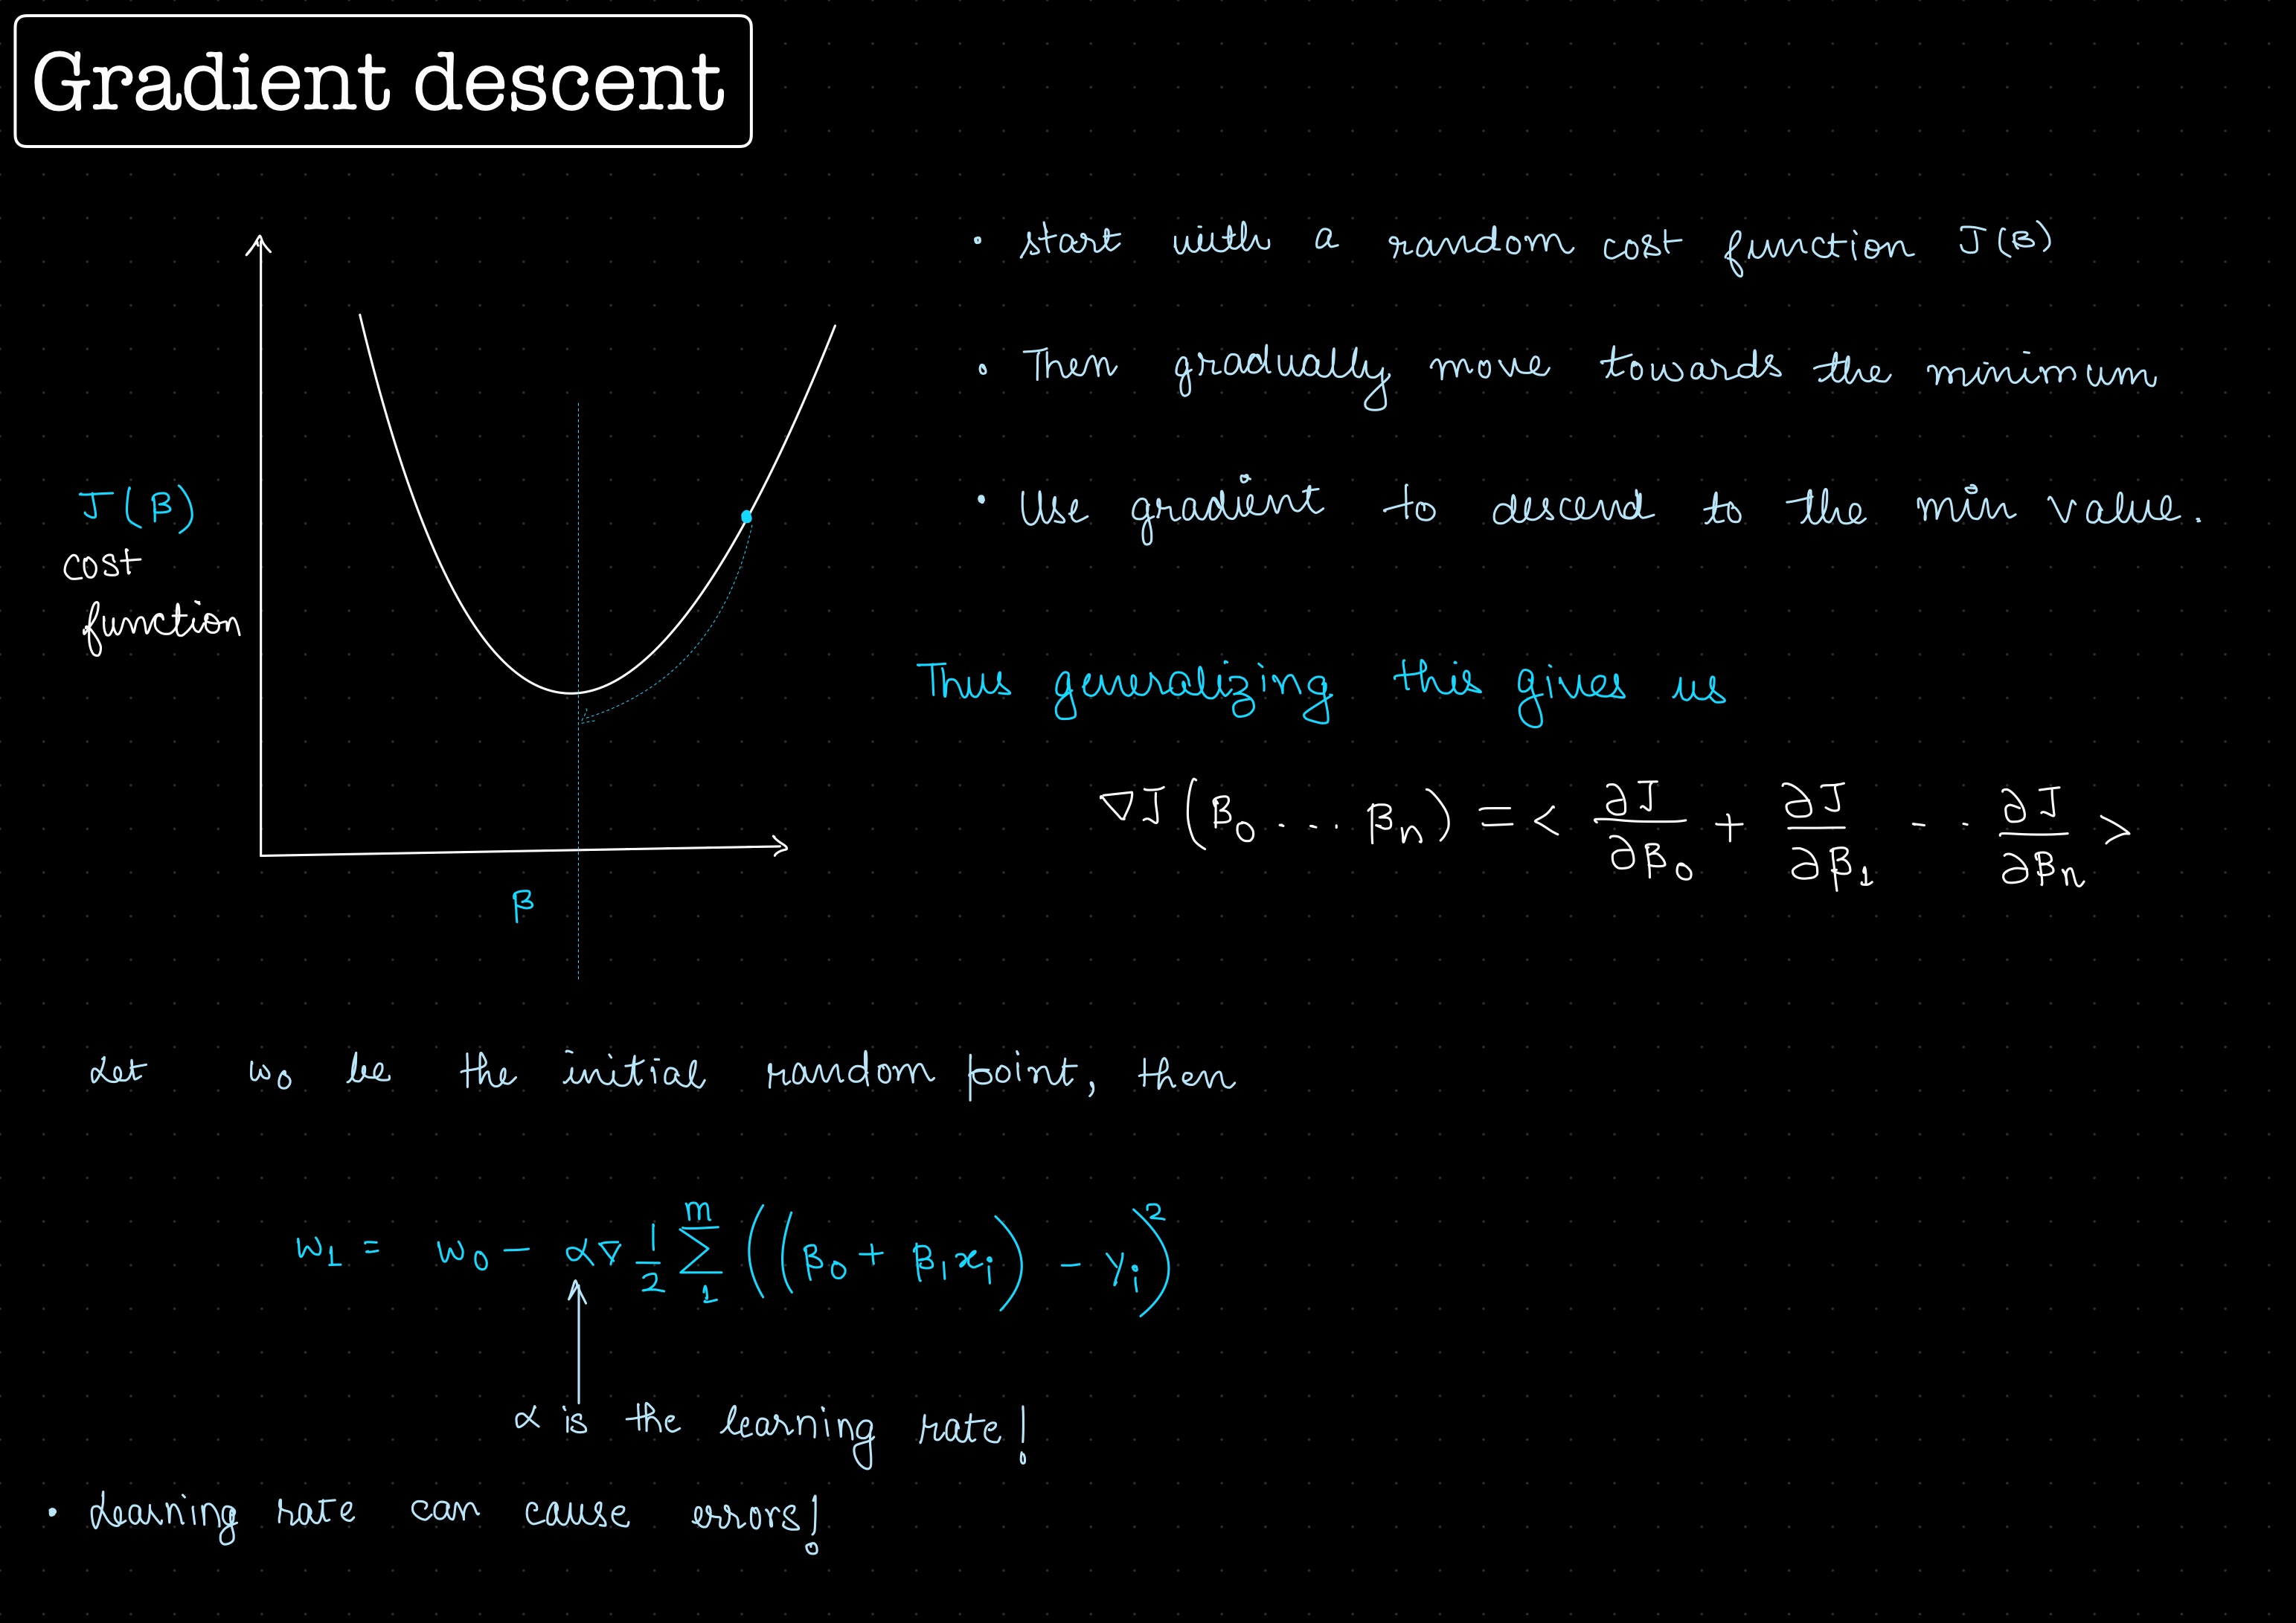 Gradient descent
• start with a random cost function J(β)
• Then gradually move towards the minimum
• Use gradient to descend to the min value.
J(β)
cost
function
β
Thus generalizing this gives us
∇J(β₀ ... βₙ) = < ∂J/∂β₀ + ∂J/∂β₁ -- ∂J/∂βₙ >
Let w₀ be the initial random point, then
w₁ = w₀ - α∇ 1/2 ∑₁ᵐ ((β₀ + β₁xᵢ) - yᵢ)²
α is the learning rate!
• Learning rate can cause errors!